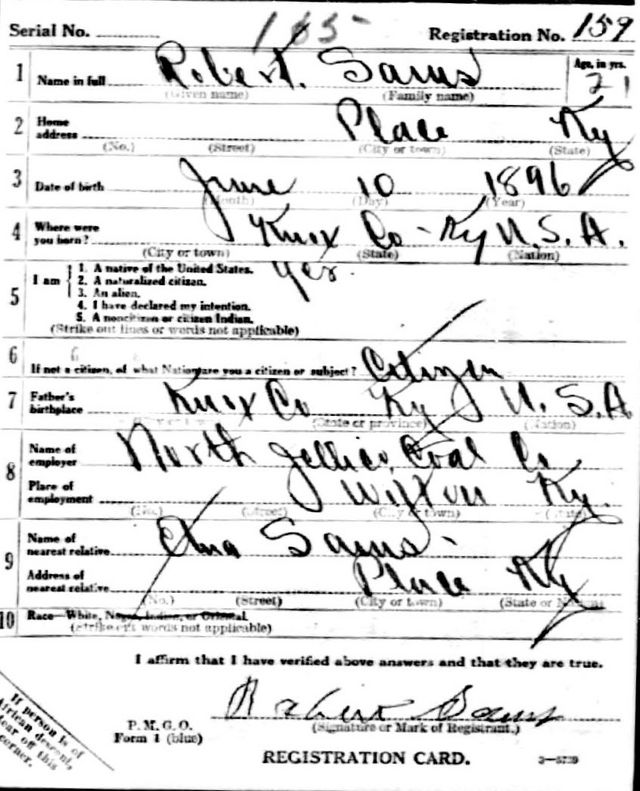 Serial No. 185 Registration No. 159
1 Name in full Robert. Sams Age, in yrs. 21
(Given name) (Family name)
2 Home address Place Ky
(No.) (Street) (City or town) (State)
3 Date of birth June 10 1896
(Month) (Day) (Year)
4 Where were you born? Knox Co - Ky U.S.A.
(City or town) (State) (Nation)
5 I am 1. A native of the United States. yes.
2. A naturalized citizen.
3. An alien.
4. I have declared my intention.
5. A noncitizen or citizen Indian.
(Strike out lines or words not applicable)
6 If not a citizen, of what Nation are you a citizen or subject? Citizen
7 Father's birthplace Knox Co Ky U.S.A
(State or province) (Nation)
8 Name of employer North Jellico Coal Co
Place of employment Wilton Ky.
(No.) (Street) (City or town) (State)
9 Name of nearest relative Sams -
Address of nearest relative Place Ky
(No.) (Street) (City or town) (State or Nation)
10 Race—White, Negro, Indian, or Oriental.
(Strike out words not applicable)
I affirm that I have verified above answers and that they are true.
Robert Sams
(Signature or Mark of Registrant.)
P. M. G. O.
Form 1 (blue)
REGISTRATION CARD.
If person is of
African descent,
tear off this
corner.